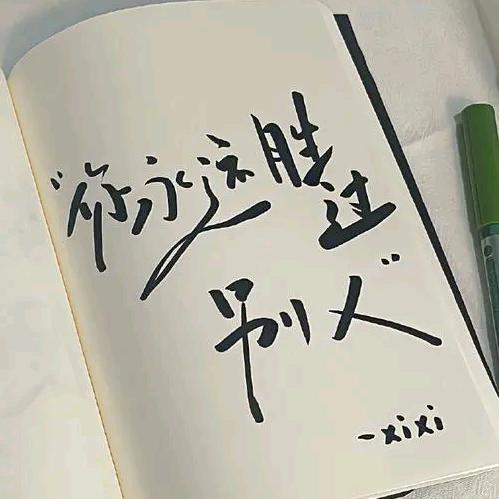 “你永远胜过
别人”
-xixi